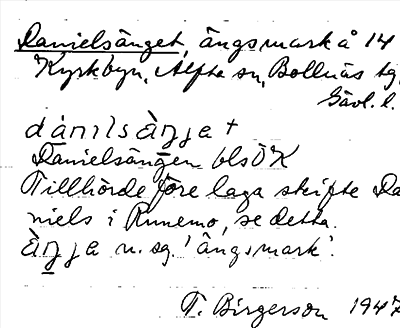 Danielsänget, ängsmark å 14
Kyrkbyn, Alfta sn, Bollnäs tg,
Gävl. l.
dànilsàŋja +
Danielsängen blsÖK
Tillhörde före laga skifte Da
niels i Runemo, se detta.
àŋja n. sg. 'ängsmark'.
T. Birgerson 1947